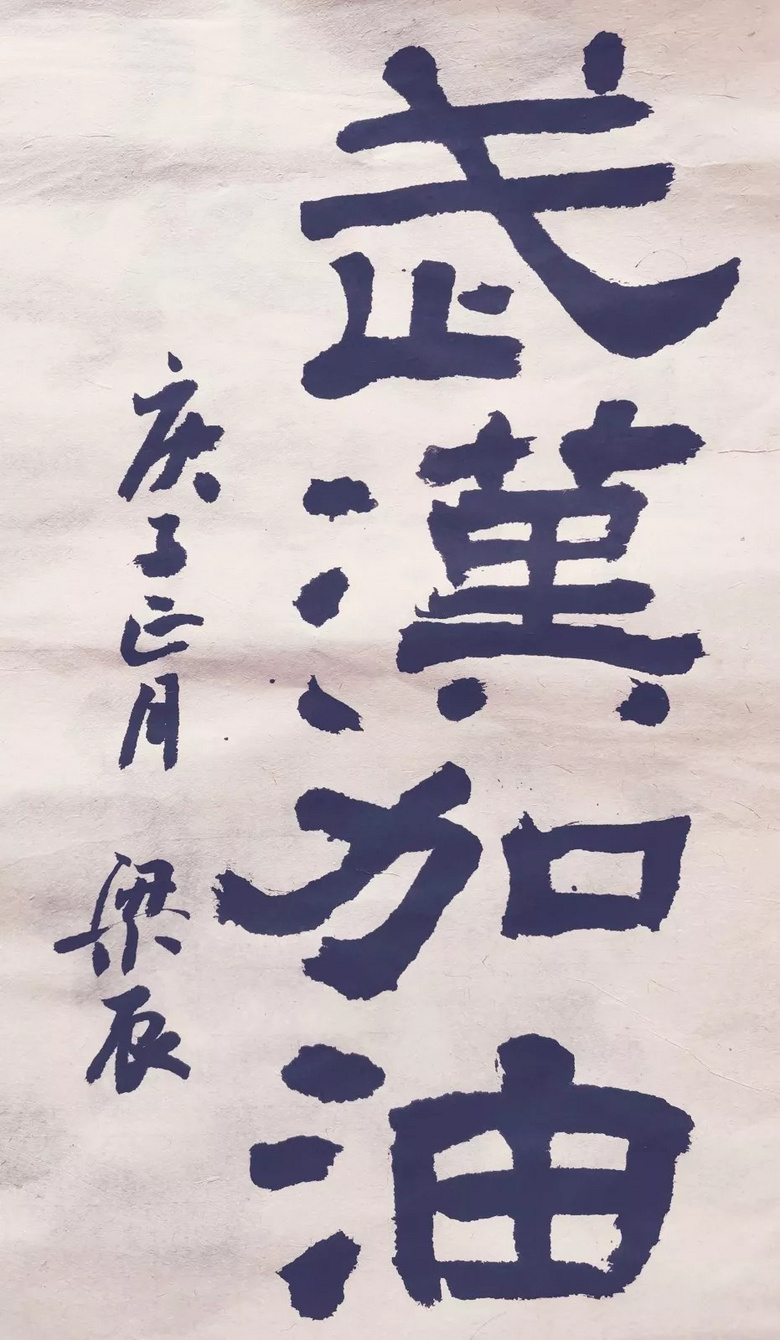 武漢加油
庚子正月
梁辰